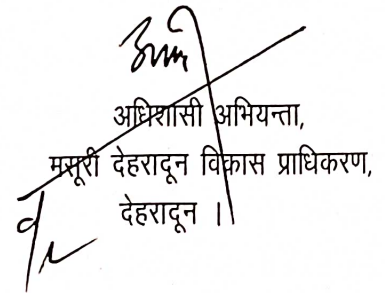 अधिशासी अभियन्ता,
मसूरी देहरादून विकास प्राधिकरण,
देहरादून ।